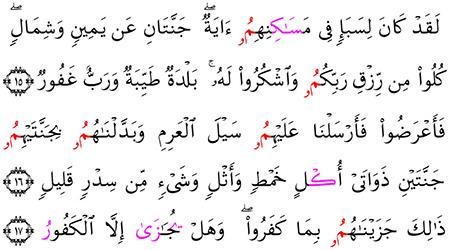 لَقَدْ كَانَ لِسَبَإٍ فِى مَسَٰكِنِهِمُۥ ءَايَةٌ ۖ جَنَّتَانِ عَن يَمِينٍ وَشِمَالٍ ۖ
كُلُوا۟ مِن رِّزْقِ رَبِّكُمُۥ وَٱشْكُرُوا۟ لَهُۥ ۚ بَلْدَةٌ طَيِّبَةٌ وَرَبٌّ غَفُورٌ ۝١٥
فَأَعْرَضُوا۟ فَأَرْسَلْنَا عَلَيْهِمُۥ سَيْلَ ٱلْعَرِمِ وَبَدَّلْنَٰهُمُۥ بِجَنَّتَيْهِمُۥ
جَنَّتَيْنِ ذَوَاتَىْ أُكْلٍ خَمْطٍ وَأَثْلٍ وَشَىْءٍ مِّن سِدْرٍ قَلِيلٍ ۝١٦
ذَٰلِكَ جَزَيْنَٰهُمُۥ بِمَا كَفَرُوا۟ ۖ وَهَلْ يُجَٰزَىٰ إِلَّا ٱلْكَفُورُ ۝١٧